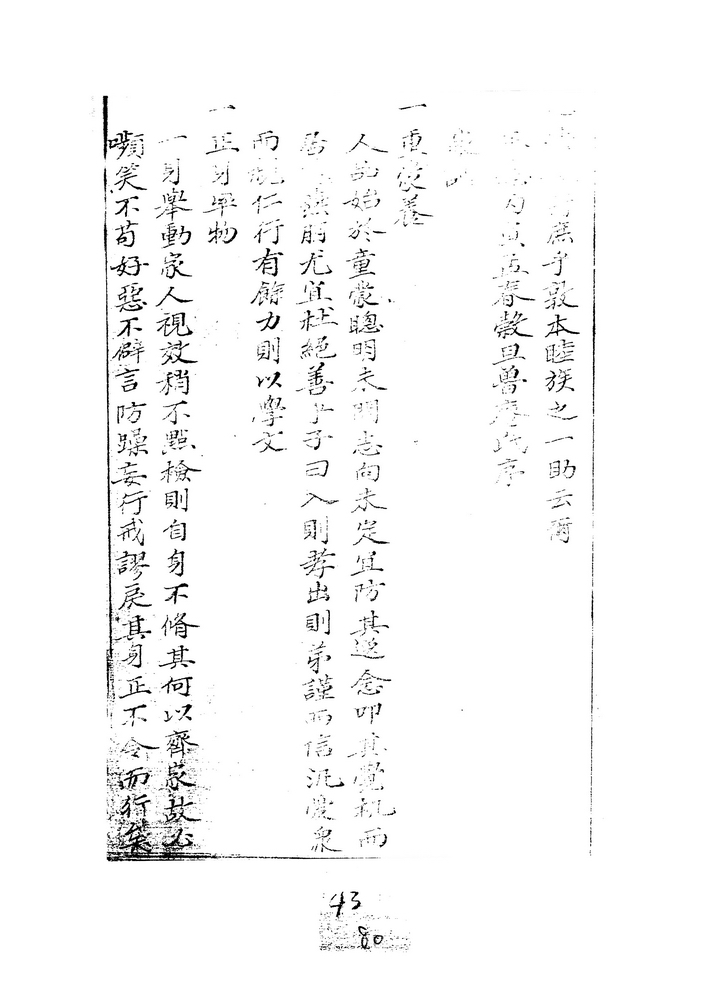 庶乎敦本睦族之一助云爾
孟春穀旦曾序
一重蒙養
人品始於童蒙聰明未開志向未定宜防其逆念叩其覺机而
尤宜杜絕善乎子曰入則孝出則弟謹而信汎愛眾
而親仁行有餘力則以學文
一正身率物
一身舉動家人視效稍不點檢則自身不脩其何以齊家故必
嚬笑不苟好惡不僻言防躁妄行戒謬戾其身正不令而行矣
43
80